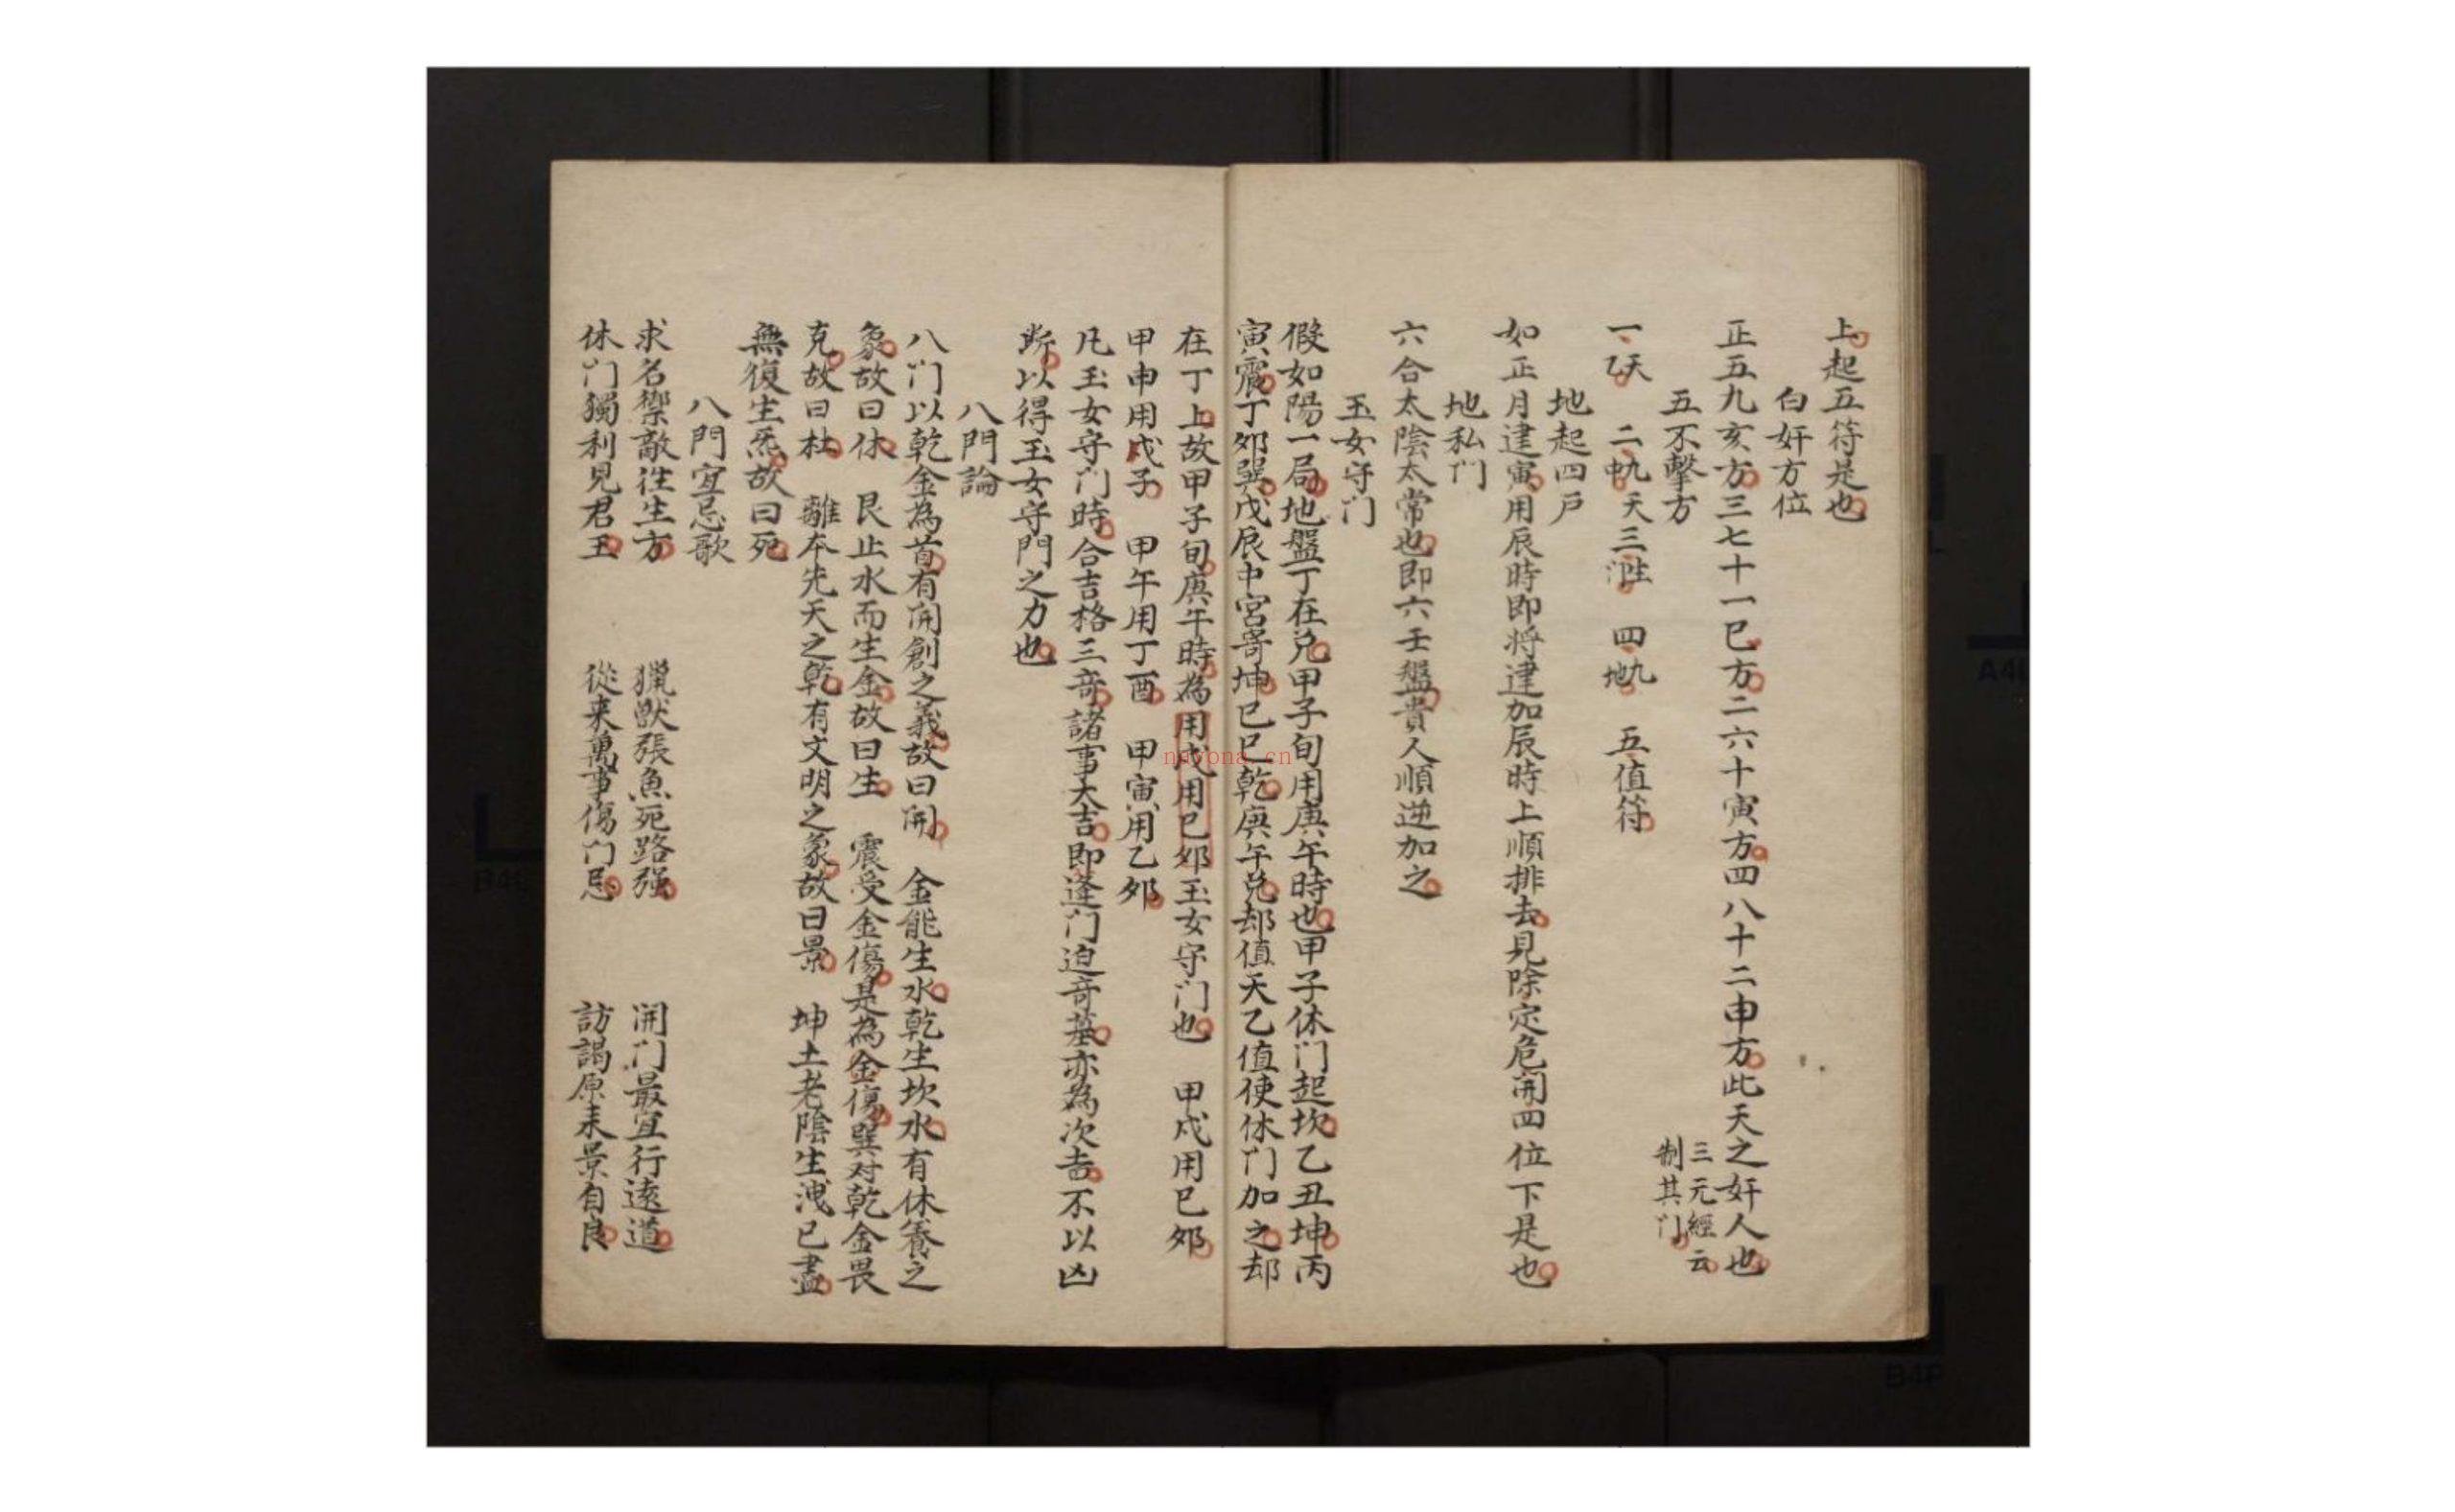 上起五符是也
白奸方位
正五九亥方三七十一巳方二六十寅方四八十二申方此天之奸人也
五不擊方 三元經云制其门
一天乙 二九天 三生门 四九地 五值符
地起四戶
如正月建寅用辰時即将建加辰時上順排去見除定危開四位下是也
地私门
六合太陰太常也即六壬盤貴人順逆加之
玉女守门
假如陽一局地盤丁在兌甲子旬用庚午時也甲子休门起坎乙丑坤丙
寅震丁夘巽戊辰中宮寄坤己巳乾庚午兌却值天乙值使休门加之却
在丁上故甲子旬庚午時為用戌用己夘玉女守门也 甲戌用己夘
甲申用戊子 甲午用丁酉 甲寅用乙夘
凡玉女守门時合吉格三竒諸事大吉即逢门迫竒墓亦為次吉不以凶
断以得玉女守門之力也
八門論
八门以乾金為首有開創之義故曰開 金能生水乾生坎水有休養之
象故曰休 艮止水而生金故曰生 震受金傷是為金傷巽对乾金畏
克故曰杜 離本先天之乾有文明之象故曰景 坤土老陰生洩已盡
無復生炁故曰死
八門宜忌歌
求名禦敵往生方 獵獸張魚死路强 開门最宜行遠道
休门獨利見君王 從来萬事傷门忌 訪謁原来景自良
nayona.cn